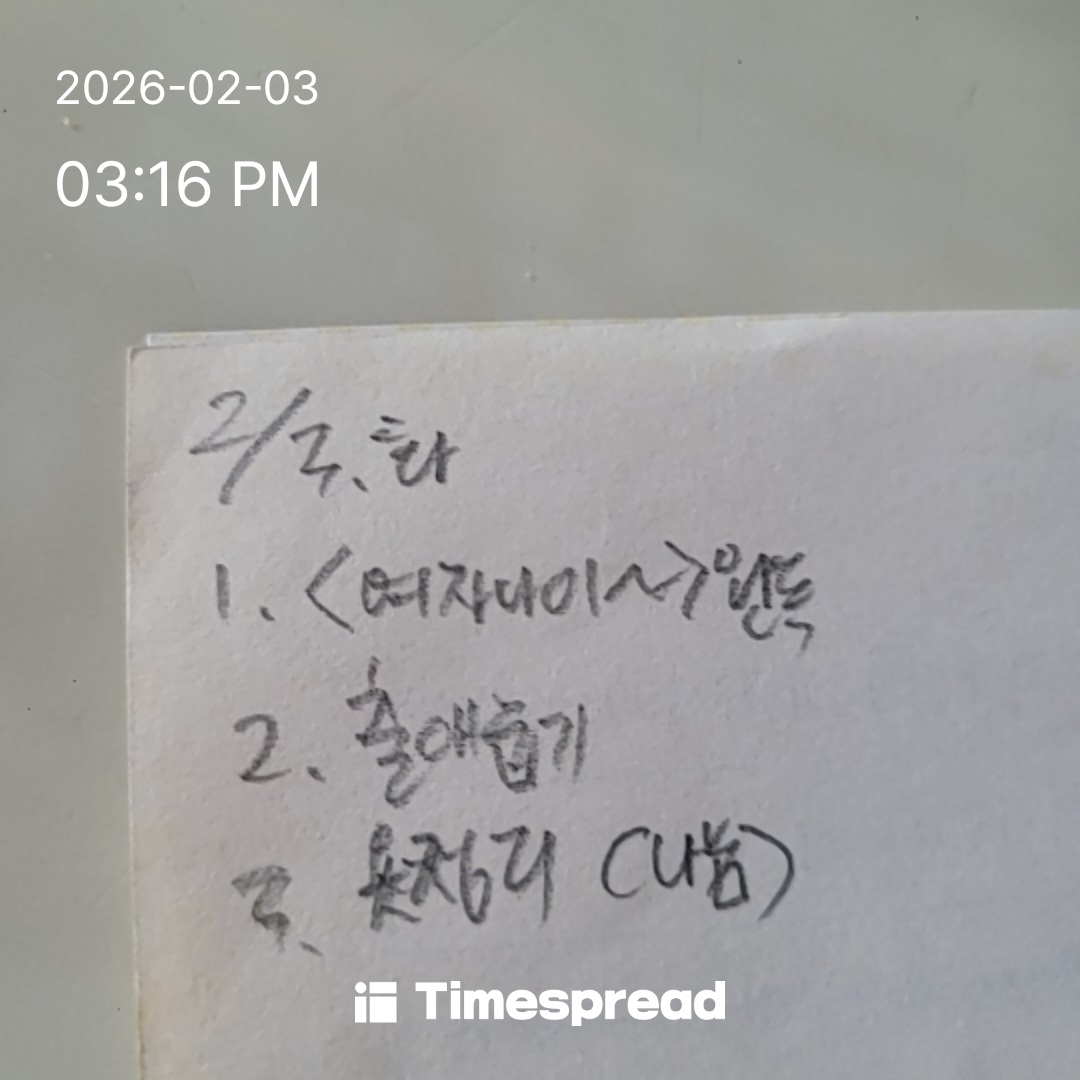 2026-02-03
03:16 PM
2/3. 화
1. <여자나이~>완독
2. 줍기
3. 옷정리 (나눔)
Timespread